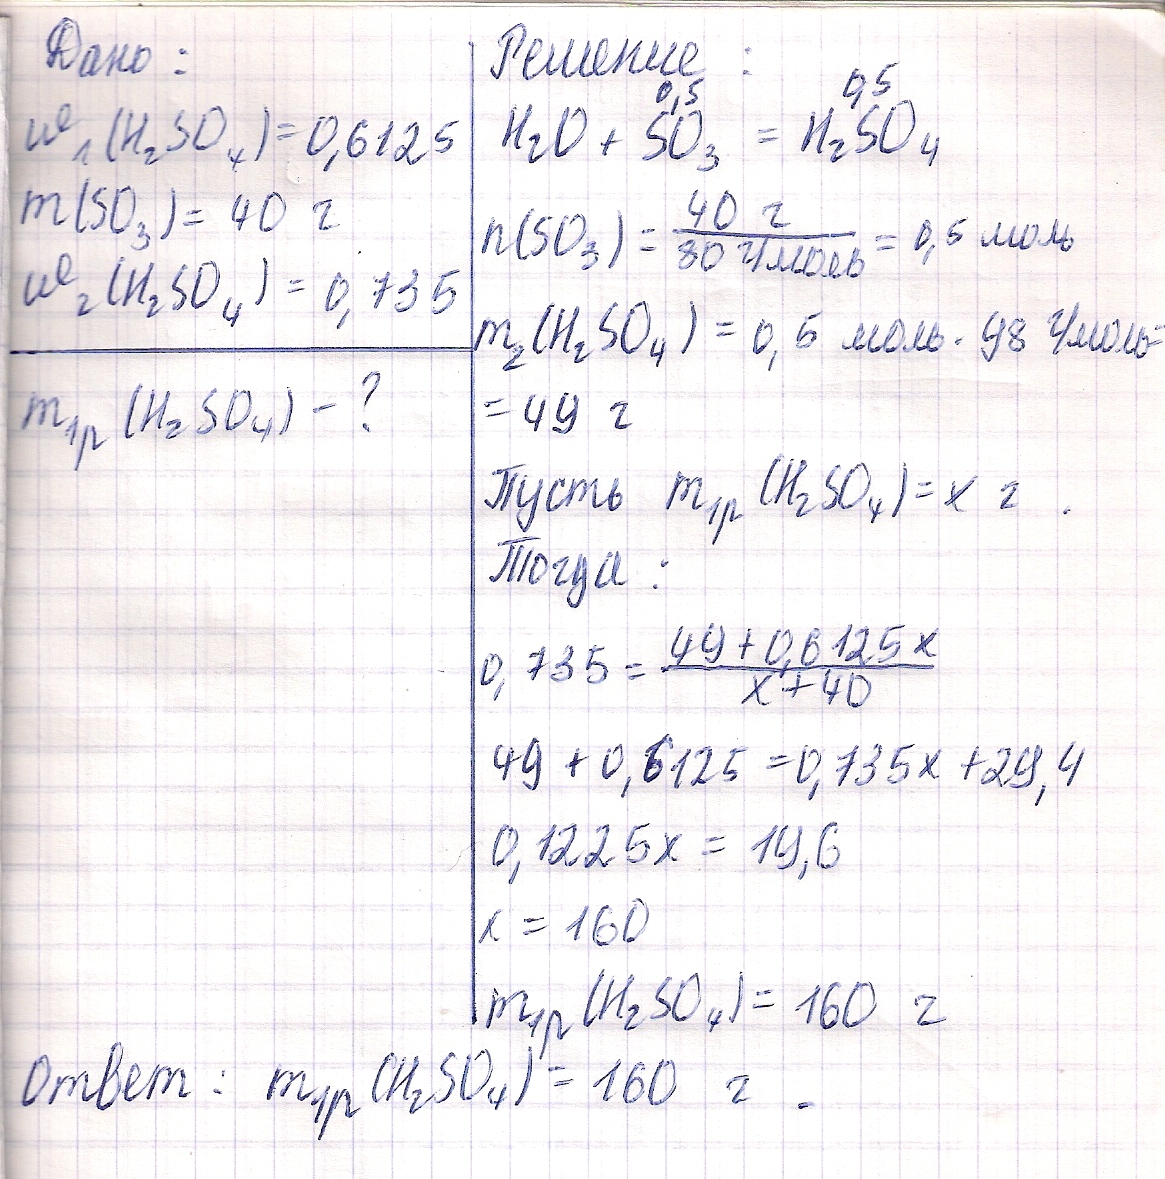 Дано:
w₁(H₂SO₄)=0,6125
m(SO₃)=40 г
w₂(H₂SO₄)=0,735
m₁ₚ(H₂SO₄)-?
Решение:
0,5 0,5
H₂O + SO₃ = H₂SO₄
n(SO₃)= 40 г / 80 г/моль = 0,5 моль
m₂(H₂SO₄)=0,5 моль · 98 г/моль=
= 49 г
Пусть m₁ₚ(H₂SO₄)=x г.
Тогда:
0,735 = 49+0,6125x / x+40
49 + 0,6125 = 0,735x + 29,4
0,1225x = 19,6
x = 160
m₁ₚ(H₂SO₄)= 160 г
Ответ: m₁ₚ(H₂SO₄)= 160 г.